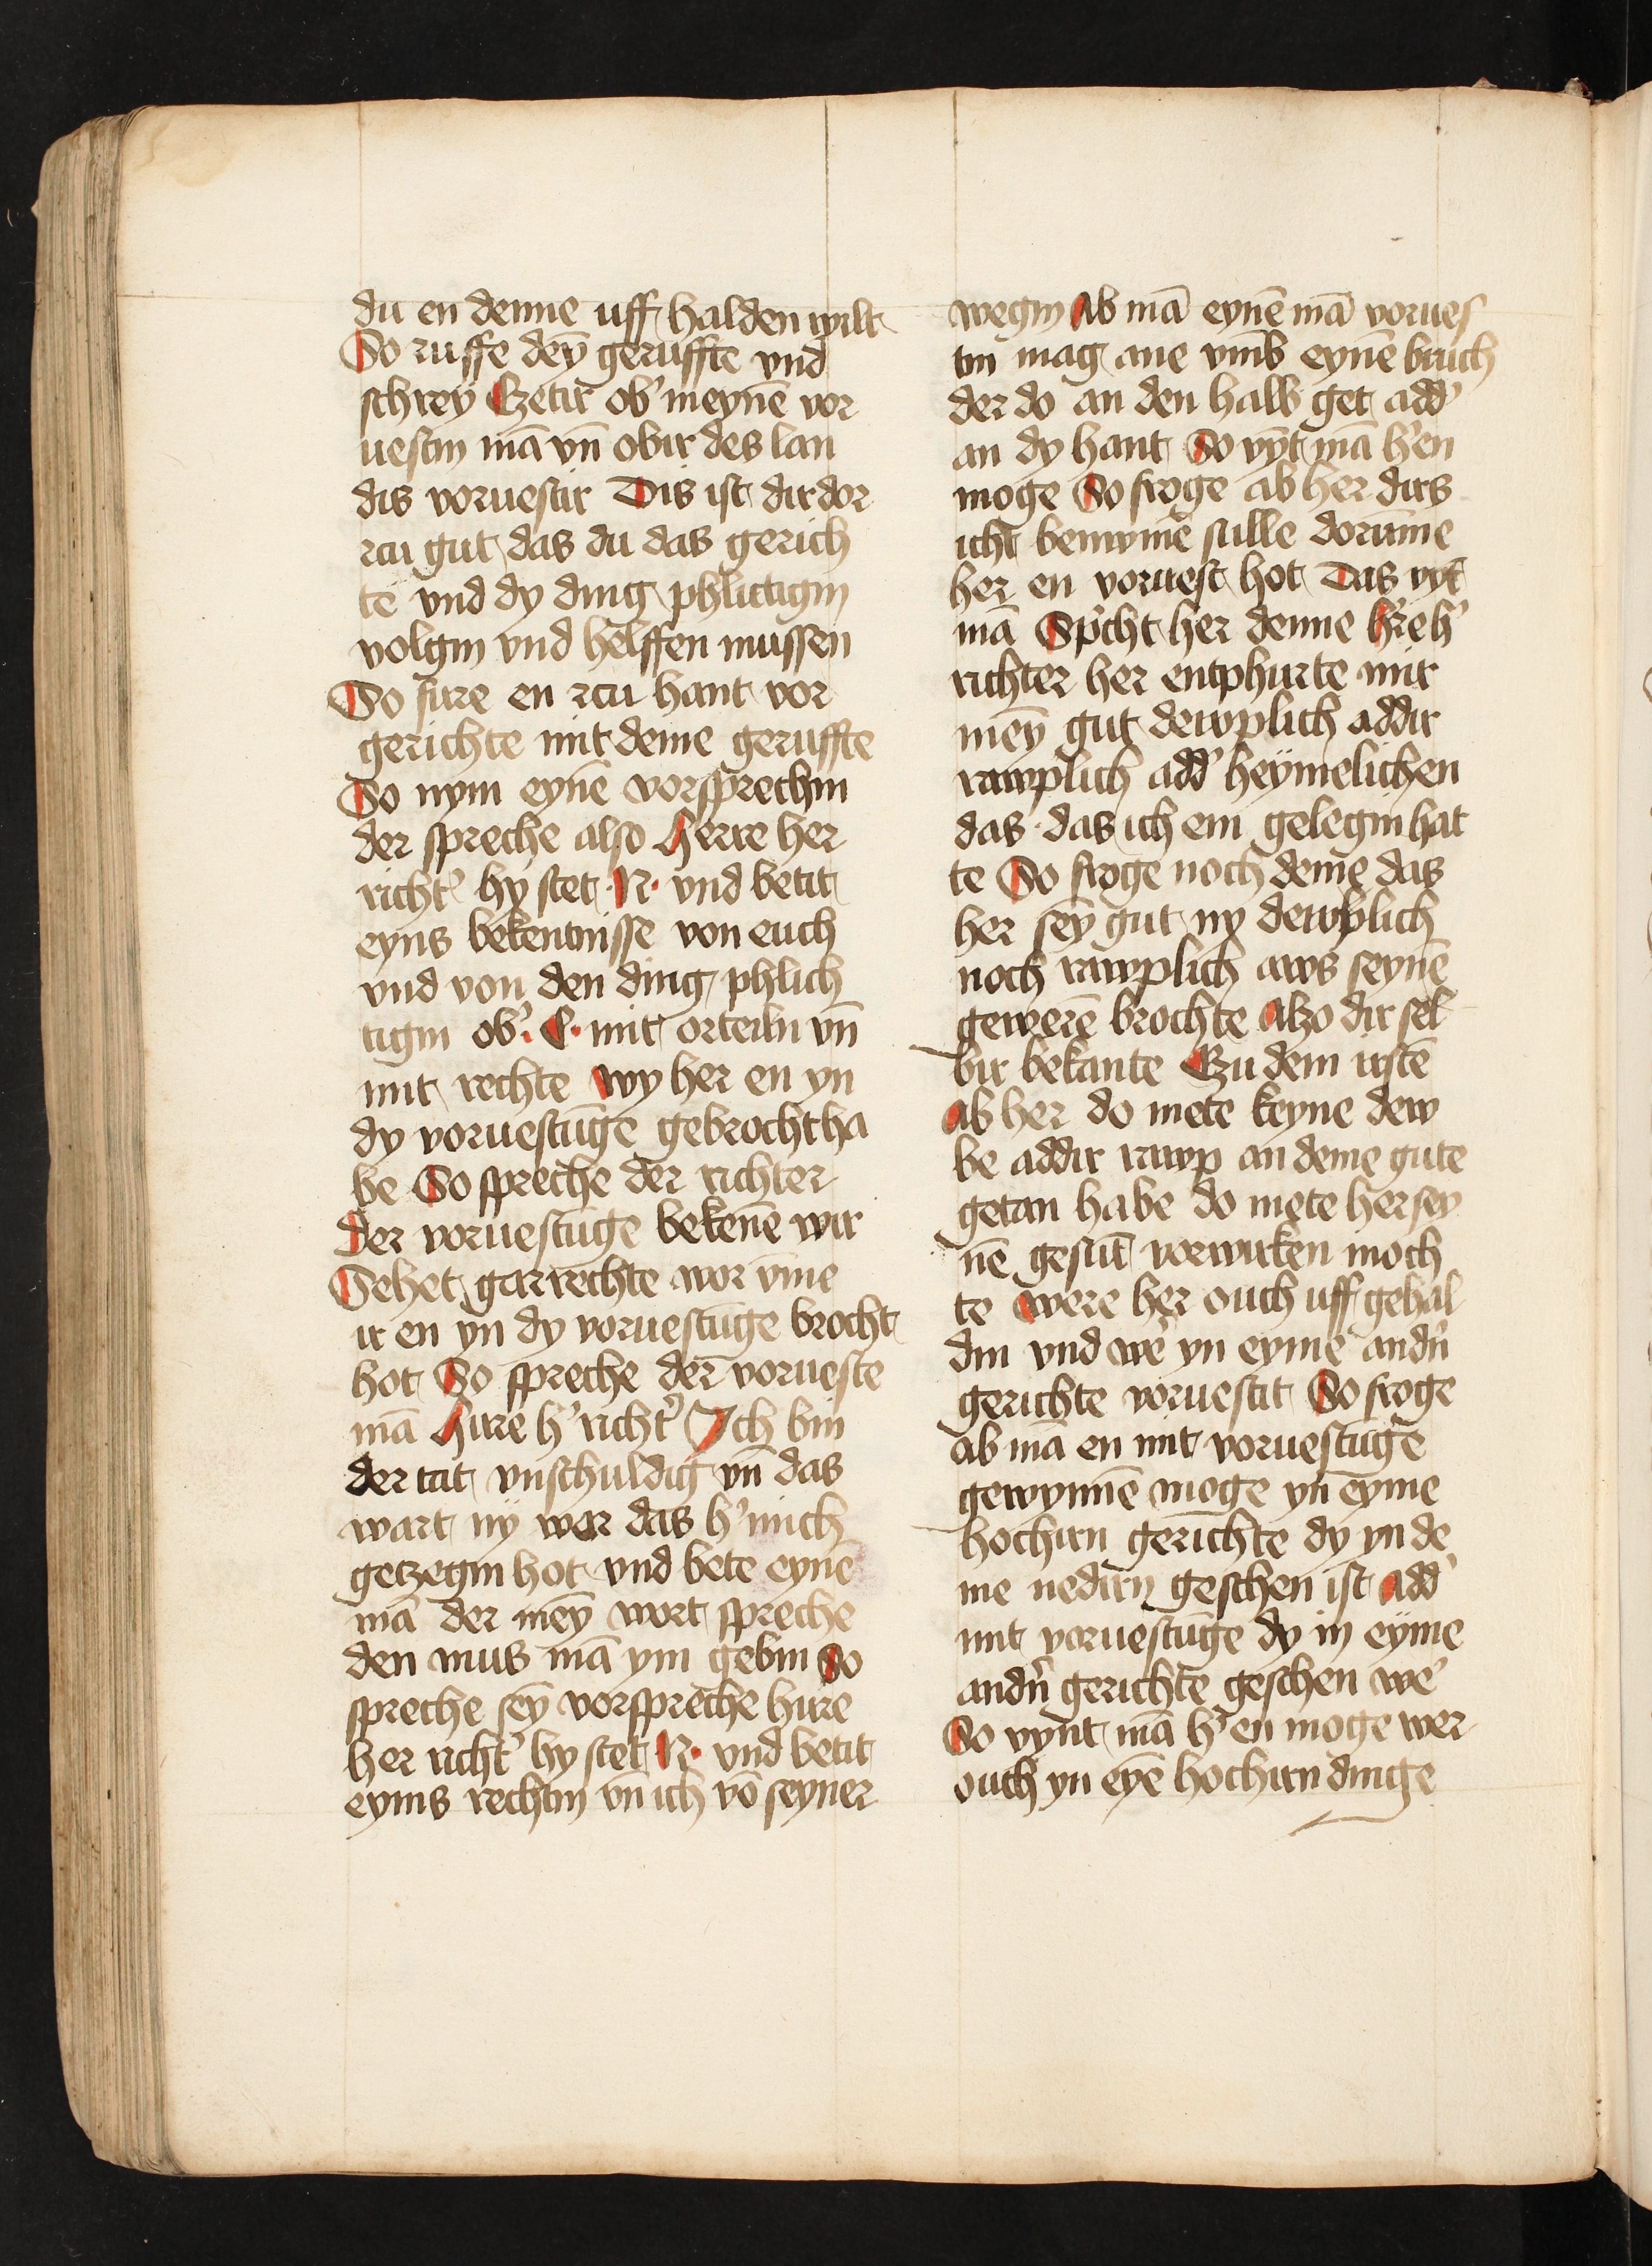 du en denne uff halden wilt
So ruffe dey̅ geruffte vnd
schrey Czetir ob' meyne̅ vor
uestin ma̅ vn̅ obir des lan
dis voruestir Dis ist dir dor
rcu gut das du das gerich
te vnd dy ding phlictigin
volgin vnd helffen mussen
So fure en rcu hant vor
gerichte mit deme geruffte
So nym eyne̅ vorsprechin
der spreche also Herre her
richt' hy stet ·N· vnd betit
eyns bekentnisse von euch
vnd von den ding phlich
tigin ob' ·C· mit orteiln vn̅
mit rechte wy her en yn
dy voruestu̅ge gebrocht ha
be So spreche der richter
Der voruestu̅ge beken̅e wir
Sehet gar rechte wor v̅me
ir en yn dy voruestu̅ge brocht
hot So spreche der vorueste
ma̅ Hirre h' richt' Ich bin
der tat vnschuldig vn̅ das
wart ny wor das h' mich
getzegin hot vnd bete eyne̅
ma̅ der mey̅ wort spreche
den mus ma̅ ym gebin So
spreche sey̅ vorspreche hirre
her richt' hy stet N· vnd betit
eynis rechtin vn̅ ich vo̅ seyner
wegin Ab ma̅ eyne̅ ma̅ vorues
tin mag ane vmb eyne̅ bruch
der do an den hals get add'
an dy hant So vy̅t ma̅ h' en
moge So froge ab her dirs
icht benu̅me̅ sulle doru̅me
her en voruest hot Das vy̅t
ma̅ Sp'cht her denne h're h'
richter her entphurte mir
mey̅ gut dewplich addir
rawplich add' heymelichen
das das ich em gelegin hat
te So froge noch deme das
her sey̅ gut ny dewplich
noch rawplich aws seyne̅
gewere̅ brochte Alzo dir sel
bir bekante Czu dem irste̅
Ab her do mete keyne dew
be addir rawp an deme gute
getan habe do mete her sey
ne̅ gesu̅t vorwirken moch
te were her ouch uff gehal
din vnd we' yn eyme and'n
gerichte voruestit So froge
ab ma̅ en mit voruestu̅ge
gewynne̅ moge yn eyme
hochirn gerichte dy yn de
me nedirn geschen ist Add'
mit voruestu̅ge dy in eyme
and'n gerichte geschen we'
So vynt ma̅ h' en moge wer
ouch yn eye̅ hochirn dinge